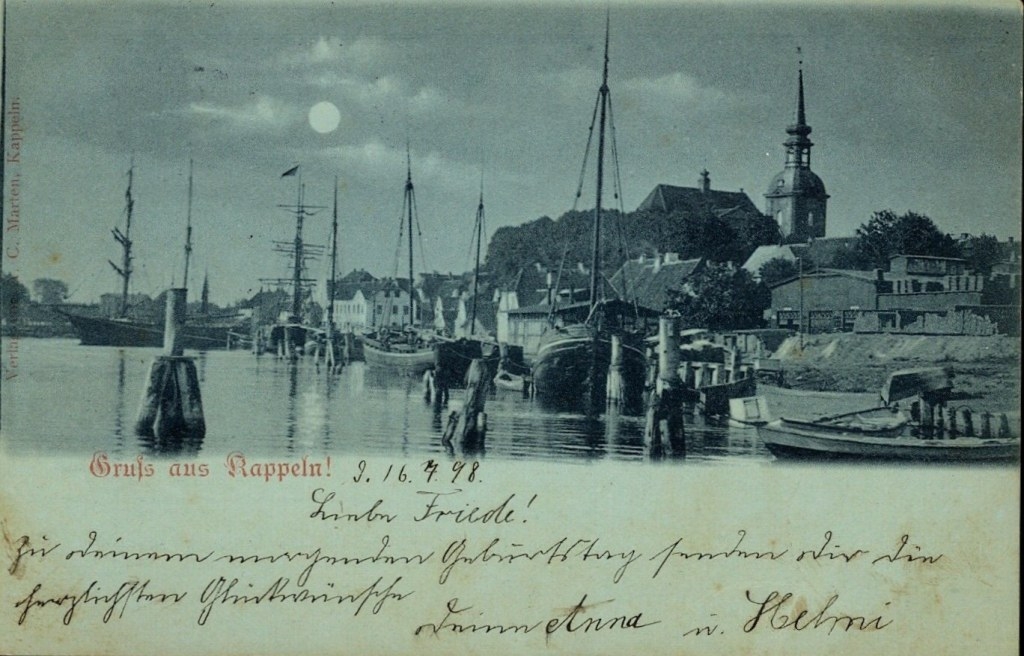 Verlag v. C. Marten, Kappeln.
Gruss aus Kappeln!
d. 16.7.98.
Liebe Friede!
Zu deinem morgenden Geburtstag senden dir die
herzlichsten Glückwünsche
deine Anna u. Helmi